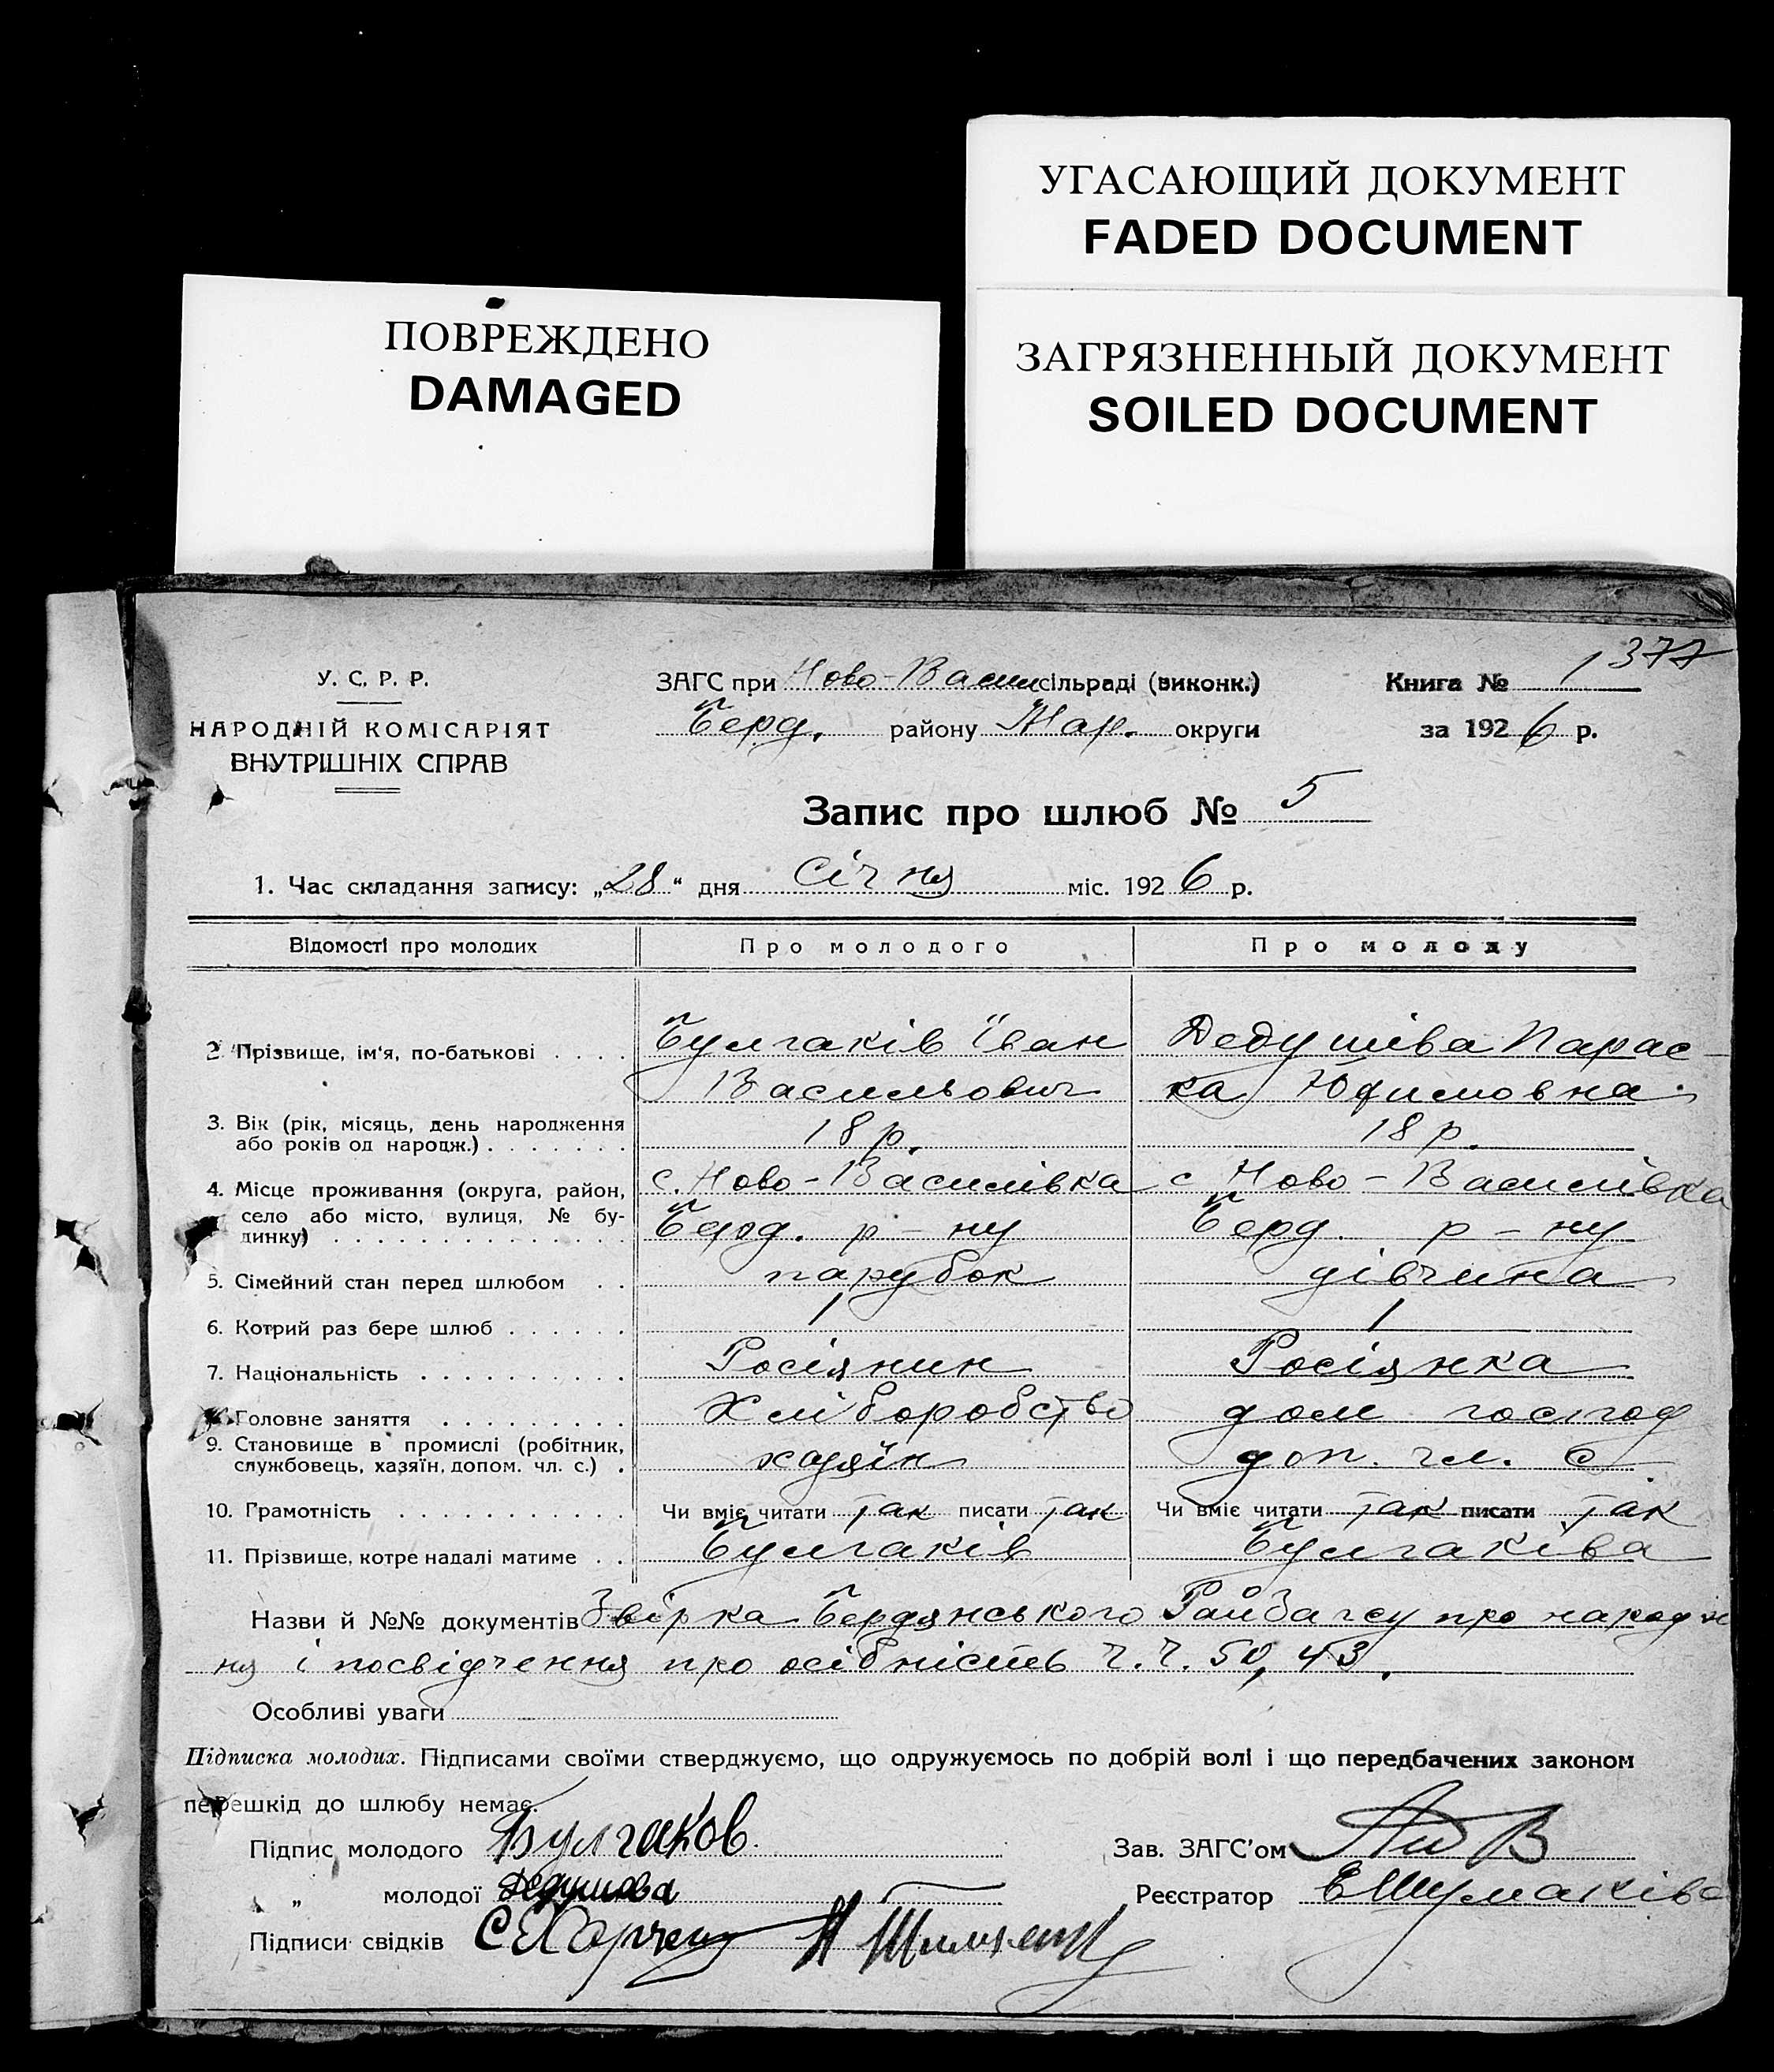 УГАСАЮЩИЙ ДОКУМЕНТ
FADED DOCUMENT
ПОВРЕЖДЕНО
DAMAGED
ЗАГРЯЗНЕННЫЙ ДОКУМЕНТ
SOILED DOCUMENT
377
У. С. Р. Р.
НАРОДНІЙ КОМІСАРІЯТ
ВНУТРІШНІХ СПРАВ
ЗАГС при Ново-Васил сільраді (виконк.)
Берд. району Мар. округи
Книга № 1
за 1926 р.
Запис про шлюб № 5
1. Час складання запису: „28“ дня Січня міс. 1926 р.
Відомості про молодих Про молодого Про молоду
2. Прізвище, ім'я, по-батькові . . . . Булгаків Іван Дедушіва Парас-
Васильович ка Юфимовна
3. Вік (рік, місяць, день народження
або років од народж.) . . . . . . . 18 р. 18 р.
4. Місце проживання (округа, район, с. Ново-Василівка с Ново-Василівка
село або місто, вулиця, № бу-
динку) . . . . . . . . . . . . . . Берд. р-ну Берд. р-ну
5. Сімейний стан перед шлюбом . . парубок дівчина
6. Котрий раз бере шлюб . . . . . . 1 1
7. Національність . . . . . . . . . . Росіянин Росіянка
8. Головне заняття . . . . . . . . . Хліборобство дом господ
9. Становище в промислі (робітник,
службовець, хазяїн, допом. чл. с.) . хазяїн доп. чл. с
10. Грамотність . . . . . . . . . . . Чи вміє читати так писати так Чи вміє читати так писати так
11. Прізвище, котре надалі матиме . . Булгаків Булгаківа
Назви й №№ документів Звірка Бердянського РайЗагсу про народжн
ня і посвідчення про осібність ч.ч. 50, 43.
Особливі уваги
Підписка молодих. Підписами своїми стверджуємо, що одружуємось по добрій волі і що передбачених законом
перешкід до шлюбу немає.
Підпис молодого Булгаков. Зав. ЗАГС'ом
„ молодої Дедушова Реєстратор ЕШумаківа
Підписи свідків